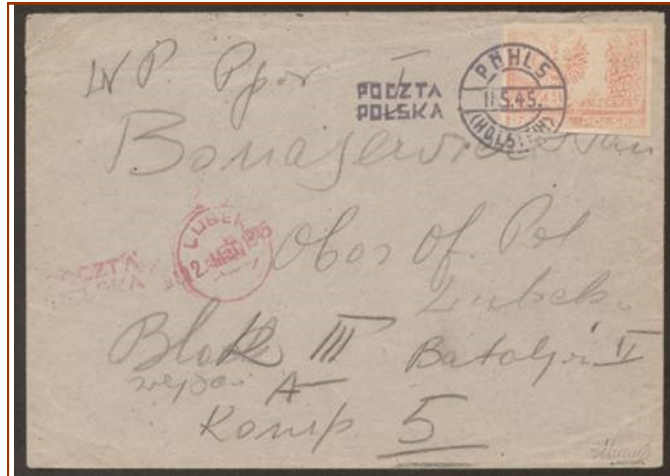 W P Ppor
POCZTA
POLSKA
PNHLS
11.5.45.
(HOLSTEIN)
POLSKA
LUBEK
12. 1945
POCZTA
POLSKA
Oboz Of. Pol
Lubek
Blok III Bataljon II
A
Komp 5